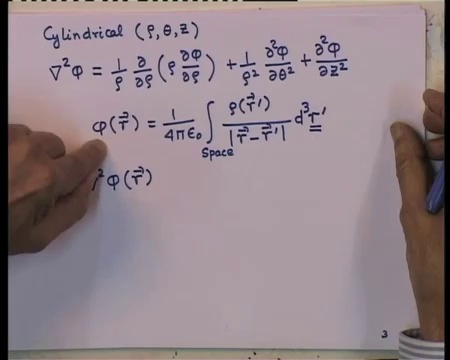 Cylindrical (ρ, θ, z)
∇²φ = 1/ρ ∂/∂ρ (ρ ∂φ/∂ρ) + 1/ρ² ∂²φ/∂θ² + ∂²φ/∂z²
φ(r⃗) = 1/4πε₀ ∫ ρ(r⃗')/|r⃗-r⃗'| d³r'
Space
²φ(r⃗)
3